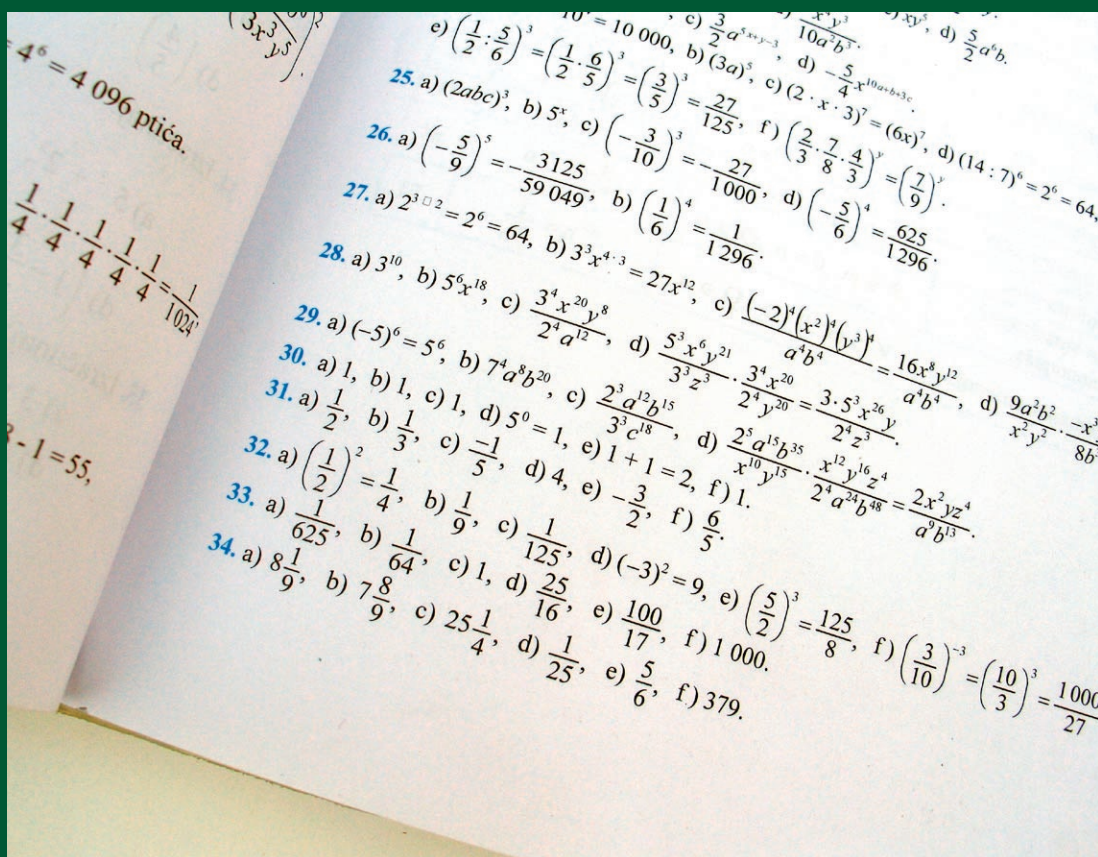 = 4⁶ = 4 096 ptića.
1/4 · 1/4 · 1/4 · 1/4 · 1/4 = 1/1024,
- 1 = 55,
= 10 000, b) (3a)⁵, c) (2 · x · 3)⁷ = (6x)⁷, d) (14 : 7)⁶ = 2⁶ = 64,
e) (1/2 : 5/6)³ = (1/2 · 6/5)³ = (3/5)³ = 27/125, f) (2/3 · 7/8 · 4/3)ʸ = (7/9)ʸ.
25. a) (2abc)³, b) 5ˣ, c) (-3/10)³ = -27/1000, d) (-5/6)⁴ = 625/1296.
26. a) (-5/9)⁵ = -3125/59 049, b) (1/6)⁴ = 1/1296.
27. a) 2³ □ ² = 2⁶ = 64, b) 3³x⁴ · ³ = 27x¹², c) (-2)⁴(x²)⁴(y³)⁴/a⁴b⁴ = 16x⁸y¹²/a⁴b⁴, d) 9a²b²/x²y² · -x³/8b³
28. a) 3¹⁰, b) 5⁶x¹⁸, c) 3⁴x²⁰y⁸/2⁴a¹², d) 5³x⁶y²¹/3³z³ · 3⁴x²⁰/2⁴y²⁰ = 3 · 5³x²⁶y/2⁴z³.
29. a) (-5)⁶ = 5⁶, b) 7⁴a⁸b²⁰, c) 2³a¹²b¹⁵/3³c¹⁸, d) 2⁵a¹⁵b³⁵/x¹⁰y¹⁵ · x¹²y¹⁶z⁴/2⁴a²⁴b⁴⁸ = 2x²yz⁴/a⁹b¹³.
30. a) 1, b) 1, c) 1, d) 5⁰ = 1, e) 1 + 1 = 2, f) 1.
31. a) 1/2, b) 1/3, c) -1/5, d) 4, e) -3/2, f) 6/5.
32. a) (1/2)² = 1/4, b) 1/9, c) 1/125, d) (-3)² = 9, e) (5/2)³ = 125/8, f) (3/10)⁻³ = (10/3)³ = 1000/27
33. a) 1/625, b) 1/64, c) 1, d) 25/16, e) 100/17, f) 1 000.
34. a) 8 1/9, b) 7 8/9, c) 25 1/4, d) 1/25, e) 5/6, f) 379.